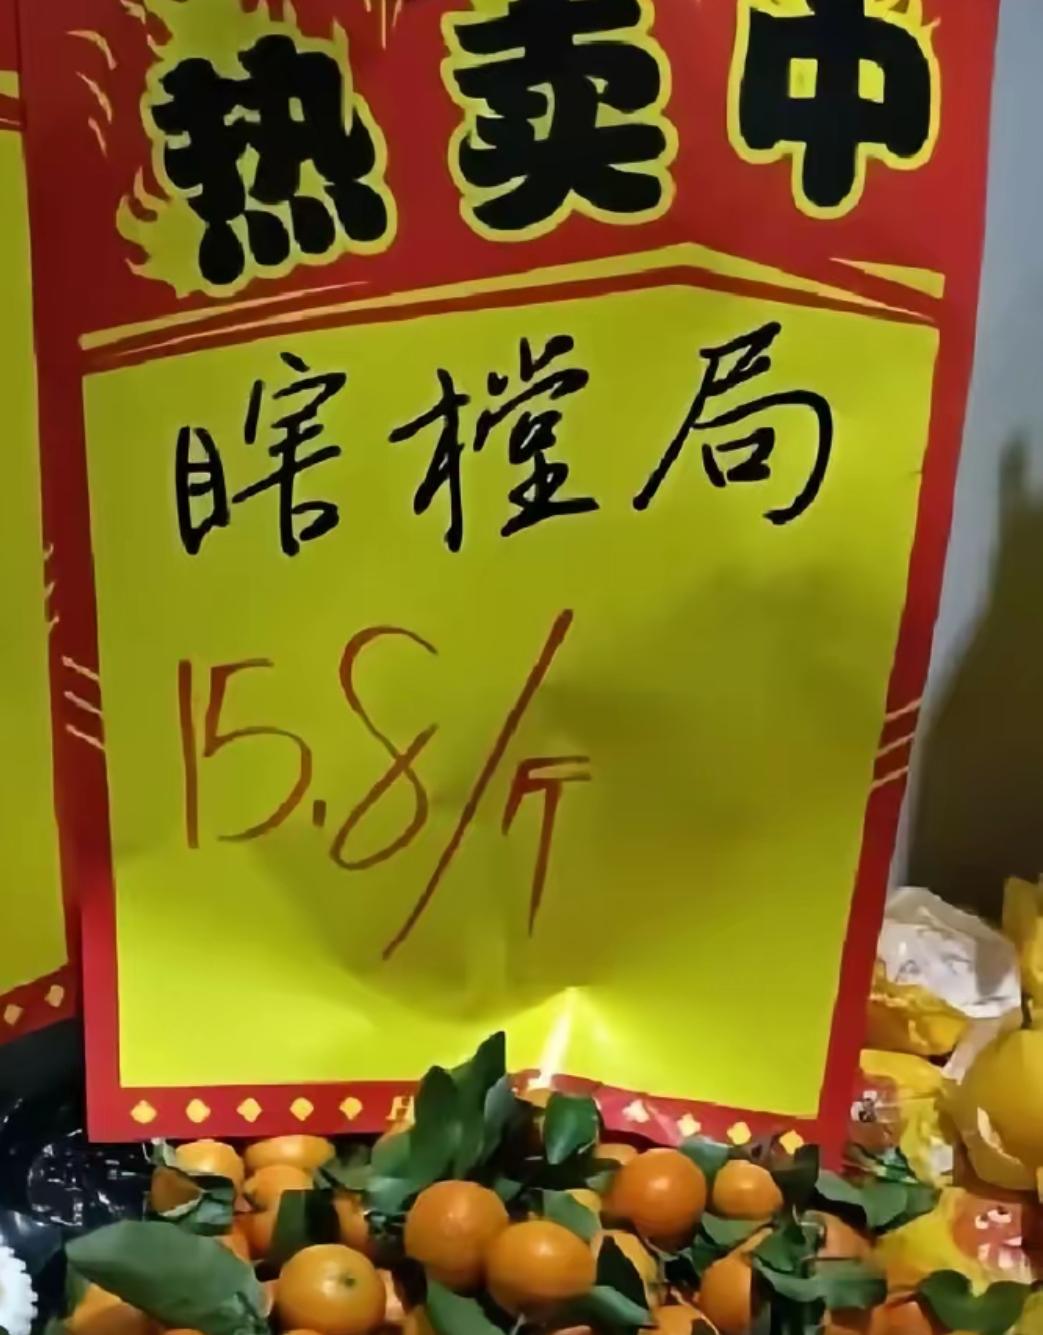 热卖中
瞎樘局
15.8/斤